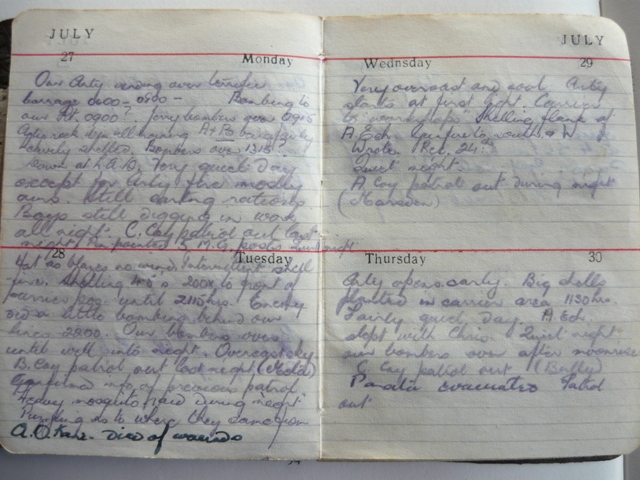 JULY
27 Monday
Our Arty sending over terrific
barrage 0400 - 0500 - Bombing to
our Rt. 0900? Jerry bombers over 0915
heavily shelled. Bombers over 1315
down at L.A.D. Very quiet day
except for Arty fire mostly
ours. Still eating rations
Boys still digging in work
all night. C. Coy patrol out last
night
28 Tuesday
Hot as blazes no wind. Intermittent shell
fire. Shelling 200x to front of
carriers pos. until 2115 hrs. Enemy
did a little bombing behind our
lines 2200. Our bombers over
until well into night. Overcast sky
B. Coy patrol out last night
Confirmed info of previous patrol
Heavy mosquito raid during night
Puzzling as to where they came from
died of wounds
JULY
Wednsday 29
Very overcast and cool. Arty
starts at first light. Carrier
to workshops. Shelling flank of
A. Ech. South & W
Wrote. Rec. 24th
Quiet night.
A Coy patrol out during night
(Marsden)
Thursday 30
Arty opens early. Big shells
planted in carrier area 1130 hrs.
Fairly quiet day. A Ech.
slept with Chris. Quiet night
our bombers over after moonrise
C Coy patrol out
evacuated Patrol
out